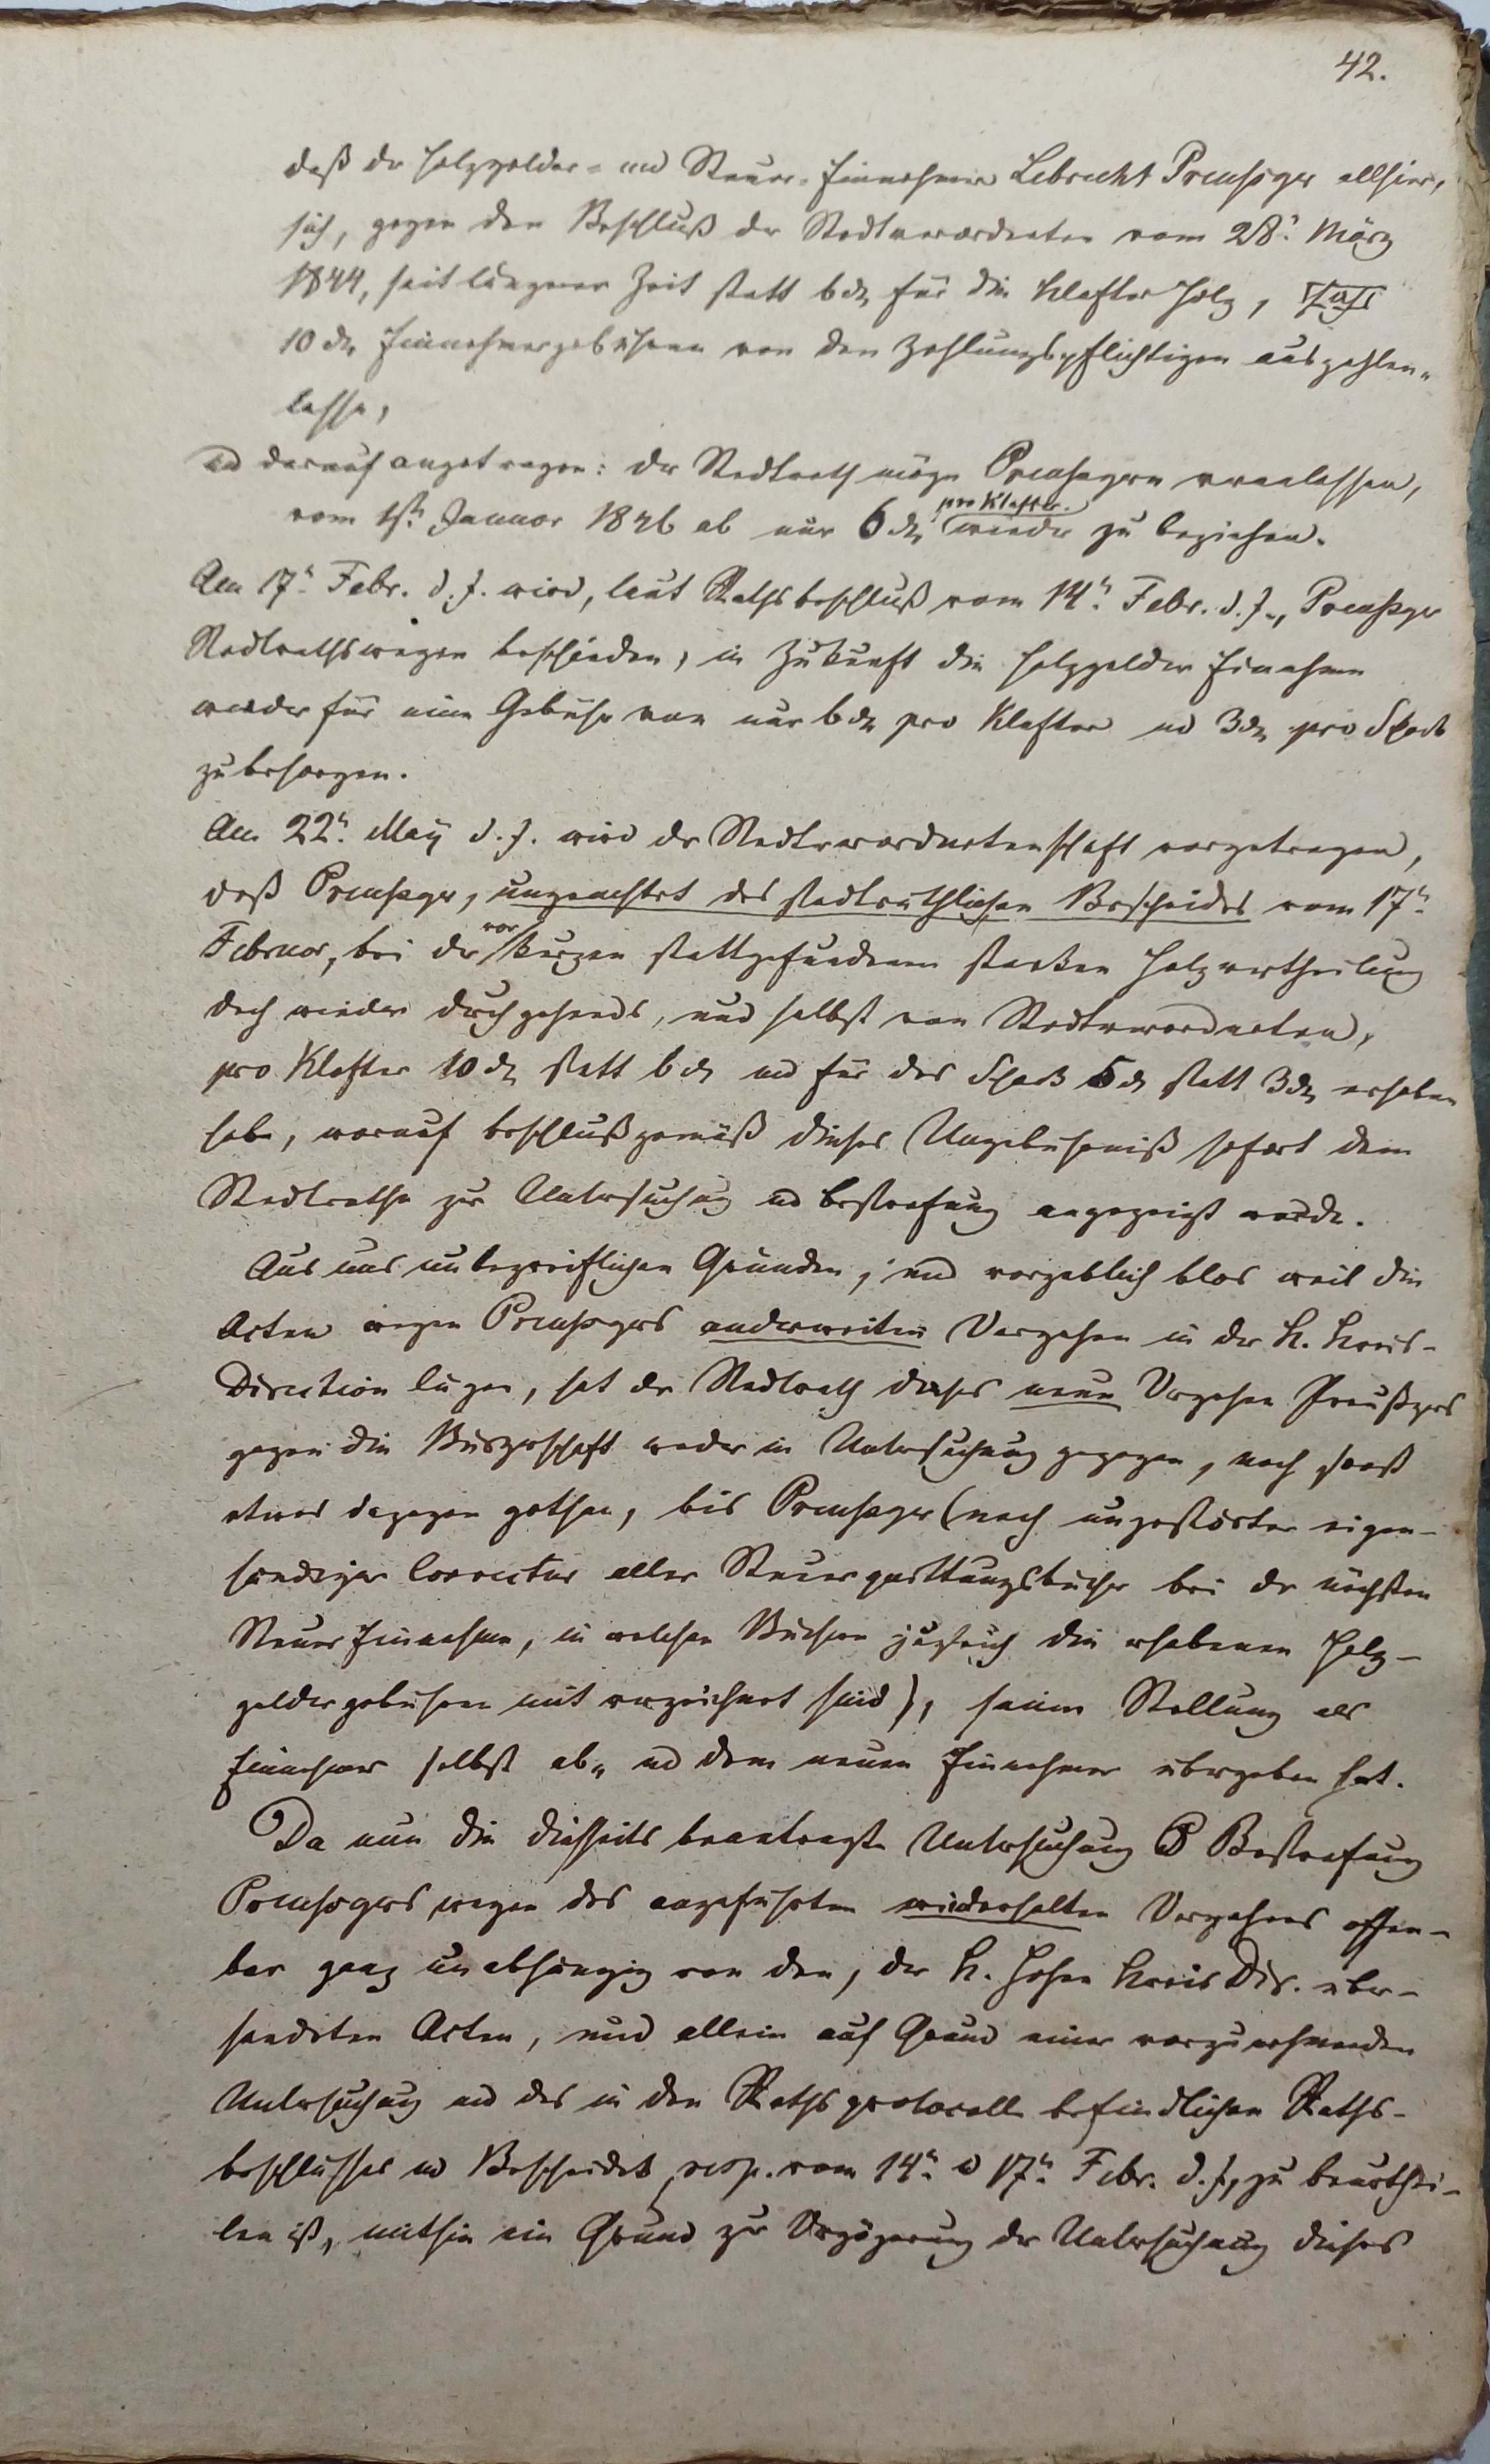 42.
daß der Holzgelder- und Steuer-Einnehmer Lebrecht Preußger allhier,
sich, gegen den Beschluß der Stadtverordneten vom 28.' März
1844, seit längerer Zeit statt 6 d. für die Klafter Holz,
10 d. Einnehmergebühren von den Zahlungspflichtigen auszahlen„
lasse,
und darauf angetragen: der Stadtrath möge Preußgern veranlassen,
pro Klafter.
vom 1st. Januar 1846 ab nur 6 d. wieder zu beziehen.
Am 17.n Febr. d. J. wird, laut Rathsbeschluß vom 14.n Febr. d. J., Preußger
Stadtrathswegen beschieden, in Zukunft die Holzgelder Einnahme
wieder für eine Gebühr von nur 6 d. pro Klafter und 3 d. pro Schock
zu besorgen.
Am 22.n May d. J. wird der Stadtverordnetenschaft vorgetragen,
daß Preußger, ungeachtet des stadtrathlichen Bescheides vom 17.n
Februar, bei der vor Kurzen stattgefundenen starken Holzvertheilung
doch wieder durchgehends, und selbst von Stadtverordneten,
pro Klafter 10 d. statt 6 d. und für das Schock 5 d. statt 3 d. erhoben
habe, worauf beschlußgemäß dieses Ungebührniß sofort dem
Stadtrathe zur Untersuchung und Bestrafung angezeigt wurde.
Aus uns unbegreiflichen Gründen, und vorgeblich blos weil die
Acten wegen Preußgers anderweiten Vergehen in der K. Kreis-
Direction lägen, hat der Stadtrath dieses neue Vergehen Preußgers
gegen die Bürgerschaft weder in Untersuchung gezogen, noch sonst
etwas dagegen gethan, bis Preußger (nach ungestörter eigen-
händiger Correctur aller Steuerquittungsbücher bei der nächsten
Steuer Einnahme, in welchen Büchern zugleich die erhobenen Holz-
geldergebühren mit verzeichnet sind), seine Stellung als
Einnehmer selbst ab„ und dem neuen Einnehmer übergeben hat.
Da nun die diesseits beantragte Untersuchung & Bestrafung
Preußgers wegen des angeführten wiederholten Vergehens offen-
bar ganz unabhängig von den, der K. Hohen Kreis Dir. über-
sendeten Acten, und allein auf Grund einer vorzunehmenden
Untersuchung und des in den Rathsprotocoll befindlichen Raths-
beschlusses und Bescheides, resp. vom 14.n & 17.n Febr. d. J., zu beurthei-
len ist, mithin ein Grund zur Verzögerung der Untersuchung dieses